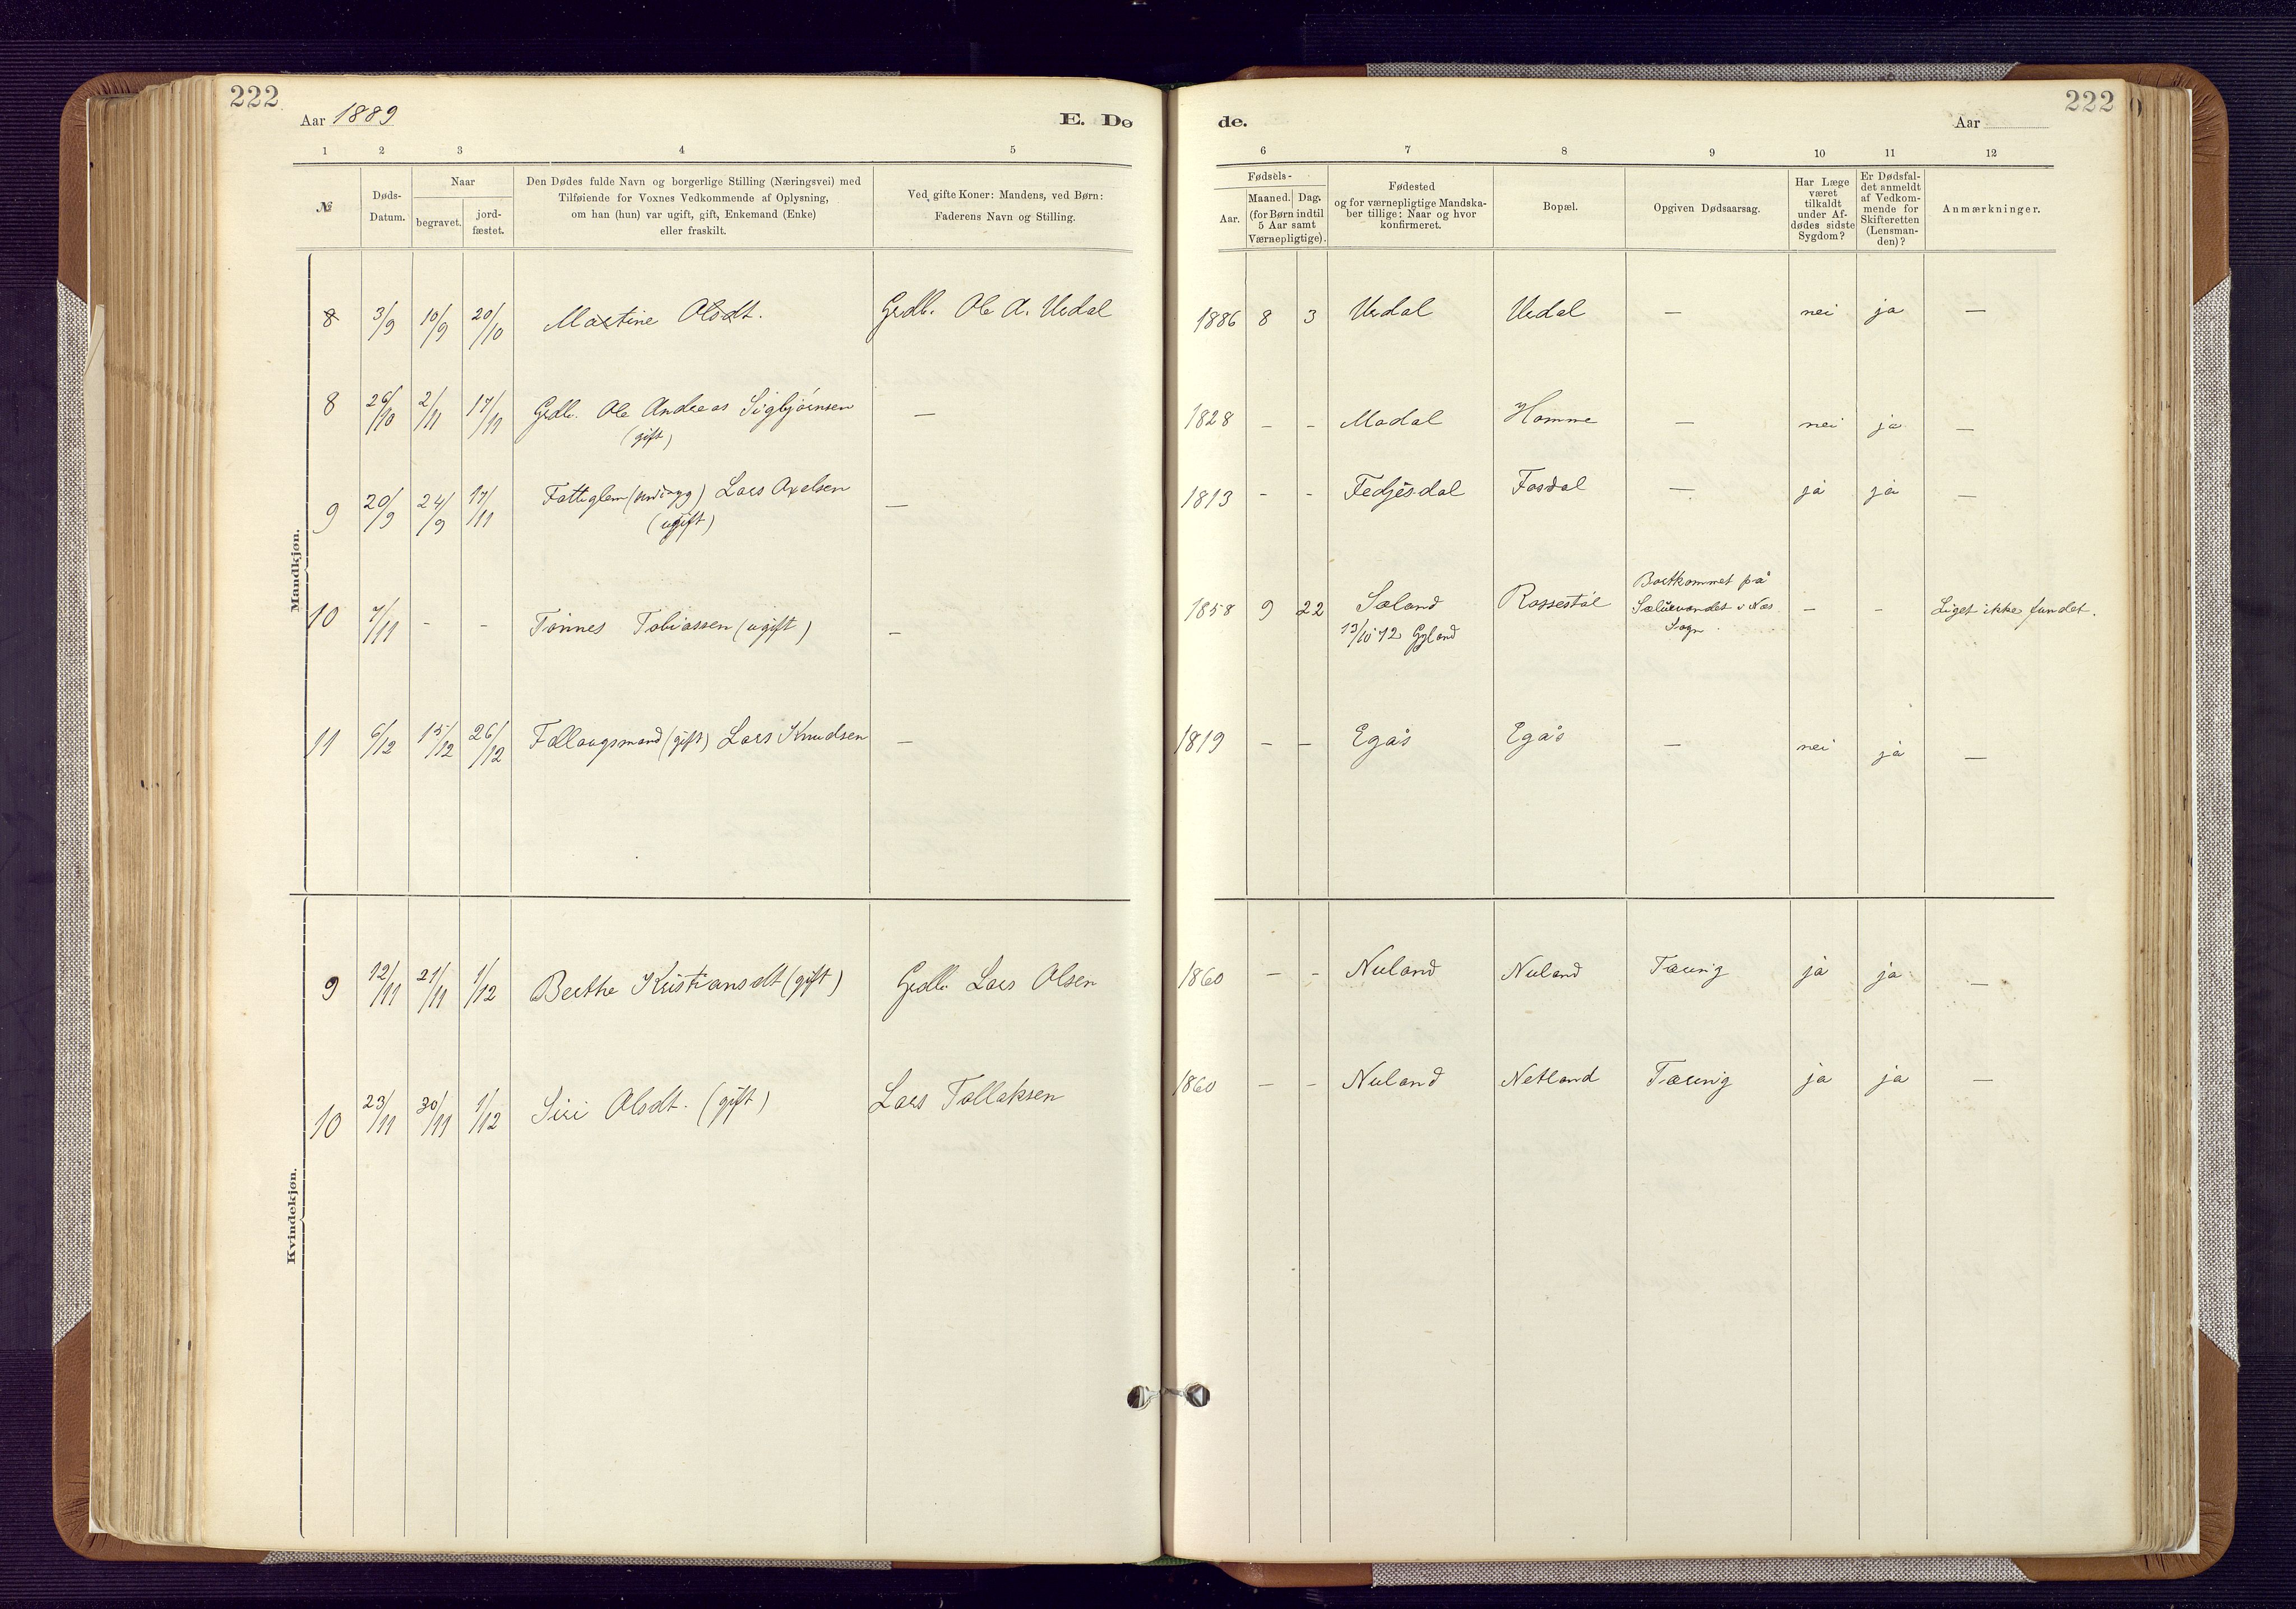 222
222
Aar 1889
E. Dø
de.
Aar
1 2 3 4 5
6 7 8 9 10 11 12
№
Døds-
Datum.
Naar
begravet.
jord-
fæstet.
Den Dødes fulde Navn og borgerlige Stilling (Næringsvei) med
Tilføiende for Voxnes Vedkommende af Oplysning,
om han (hun) var ugift, gift, Enkemand (Enke)
eller fraskilt.
Ved gifte Koner: Mandens, ved Børn:
Faderens Navn og Stilling.
Fødsels-
Aar.
Maaned. Dag.
(for Børn indtil
5 Aar samt
Værnepligtige).
Fødested
og for værnepligtige Mandska-
ber tillige: Naar og hvor
konfirmeret.
Bopæl.
Opgiven Dødsaarsag.
Har Læge
været
tilkaldt
under Af-
dødes sidste
Sygdom?
Er Dødsfal-
det anmeldt
af Vedkom-
mende for
Skifteretten
(Lensman-
den)?
Anmærkninger.
Mandkjøn.
8 3/9 10/9 20/10 Martine Olsdt. Grdb. Ole A. Urdal 1886 8 3 Urdal Urdal — nei ja —
8 26/10 2/11 17/11 Grdb. Ole Andreas Sigbjørnsen — 1828 - - Modal Homme — nei ja —
(gift)
9 20/9 24/9 17/11 Fattiglem Lars Axelsen — 1813 - - Fedjesdal Fosdal — ja ja —
(ugift)
10 7/11 - - Tønnes Tobiassen (ugift) — 1858 9 22 Søland Rossestøl Bortkommet på - - Liget ikke fundet.
13/10 72 Gyland
Sælurvandet i Næs
Sogn.
11 6/12 15/12 26/12 Follaugsmand (gift) Lars Knudsen — 1819 - - Egås Egås — nei ja —
Kvindekjøn.
9 12/11 21/11 1/12 Berthe Kristiansdt (gift) Grdb. Lars Olsen 1860 - - Nuland Nuland Tæring ja ja —
10 23/11 30/11 1/12 Siri Olsdt. (gift) Lars Tollaksen 1860 - - Nuland Netland Tæring ja ja —